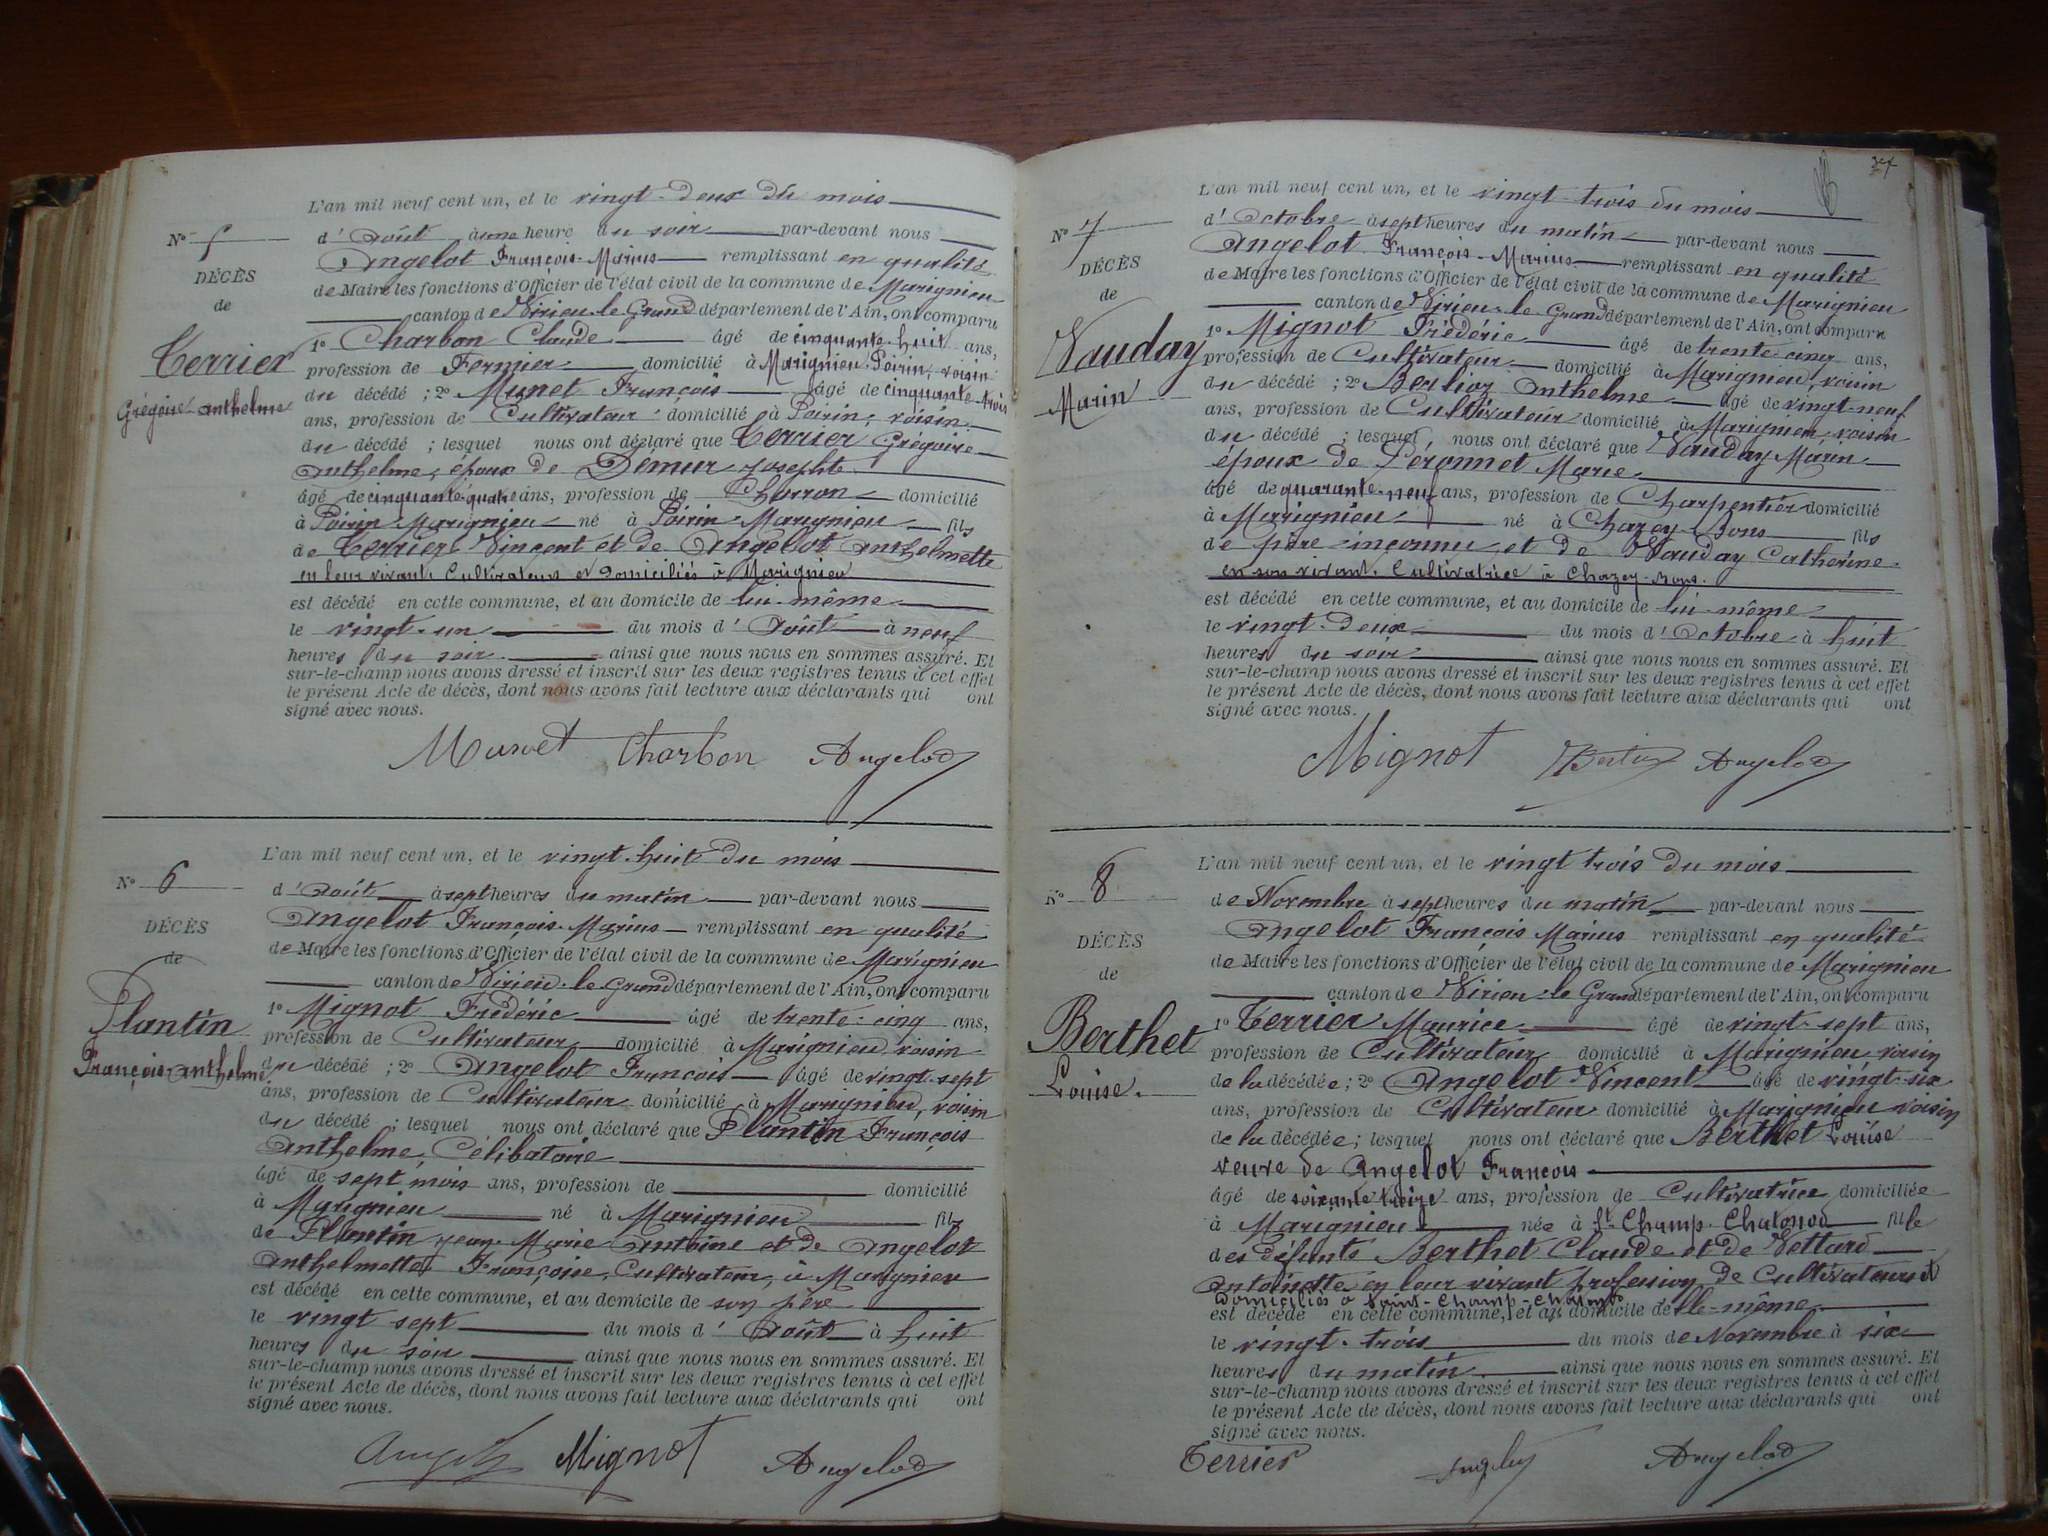 L'an mil neuf cent un, et le vingt-deux du mois
N° 5
d'Août à une heure du soir par-devant nous
DÉCÈS
Angelot François-Marius remplissant en qualité
de
de Maire les fonctions d'Officier de l'état civil de la commune de Marignieu
canton de Virieu-le-Grand département de l'Ain, ont comparu
Terrier
1° Charbon Claude âgé de cinquante-huit ans,
profession de Fermier domicilié à Marignieu-Poirin, voisin
Grégoire-Anthelme
du décédé ; 2° Munet François âgé de cinquante-trois
ans, profession de Cultivateur domicilié à Poirin, voisin
du décédé ; lesquel nous ont déclaré que Terrier Grégoire
Anthelme, époux de Demeur Josephte
âgé de cinquante-quatre ans, profession de Charron domicilié
à Poirin-Marignieu né à Poirin-Marignieu fils
de Terrier Vincent et de Angelot Anthelmette
en leur vivant, Cultivateurs et domiciliés à Marignieu
est décédé en cette commune, et au domicile de lui-même
le vingt-un du mois d'Août à neuf
heures du soir ainsi que nous nous en sommes assuré. Et
sur-le-champ nous avons dressé et inscrit sur les deux registres tenus à cet effet
le présent Acte de décès, dont nous avons fait lecture aux déclarants qui ont
signé avec nous.
Munet Charbon Angelot
L'an mil neuf cent un, et le vingt-huit du mois
N° 6
d'Août à sept heures du matin par-devant nous
DÉCÈS
Angelot François-Marius remplissant en qualité
de
de Maire les fonctions d'Officier de l'état civil de la commune de Marignieu
canton de Virieu-le-Grand département de l'Ain, ont comparu
Plantin
1° Mignot Frédéric âgé de trente-cinq ans,
profession de Cultivateur domicilié à Marignieu, voisin
François-Anthelme
du décédé ; 2° Angelot François âgé de vingt-sept
ans, profession de Cultivateur domicilié à Marignieu, voisin
du décédé ; lesquel nous ont déclaré que Plantin François
Anthelme, Célibataire
âgé de sept mois ans, profession de domicilié
à Marignieu né à Marignieu fils
de Plantin Jean-Marie Antoine et de Angelot
Anthelmette Françoise, Cultivateur, à Marignieu
est décédé en cette commune, et au domicile de son père
le vingt sept du mois d'Août à huit
heures du soir ainsi que nous nous en sommes assuré. Et
sur-le-champ nous avons dressé et inscrit sur les deux registres tenus à cet effet
le présent Acte de décès, dont nous avons fait lecture aux déclarants qui ont
signé avec nous.
Angelot Mignot Angelot
L'an mil neuf cent un, et le vingt-trois du mois
N° 7
d'Octobre à sept heures du matin par-devant nous
DÉCÈS
Angelot François-Marius remplissant en qualité
de
de Maire les fonctions d'Officier de l'état civil de la commune de Marignieu
canton de Virieu-le-Grand département de l'Ain, ont comparu
Vauday
1° Mignot Frédéric âgé de trente cinq ans,
profession de Cultivateur domicilié à Marignieu, voisin
Marin
du décédé ; 2° Berlioz Anthelme âgé de vingt-neuf
ans, profession de Cultivateur domicilié à Marignieu, voisin
du décédé ; lesquel, nous ont déclaré que Vauday Marin
époux de Péronnet Marie
âgé de quarante-neuf ans, profession de Charpentier domicilié
à Marignieu né à Chazey-Bons fils
de père inconnu et de Vauday Catherine
en son vivant, Cultivatrice à Chazey-Bons.
est décédé en cette commune, et au domicile de lui-même
le vingt-deux du mois d'Octobre à huit
heures du soir ainsi que nous nous en sommes assuré. Et
sur-le-champ nous avons dressé et inscrit sur les deux registres tenus à cet effet
le présent Acte de décès, dont nous avons fait lecture aux déclarants qui ont
signé avec nous.
Mignot Angelot
L'an mil neuf cent un, et le vingt trois du mois
N° 8
de Novembre à sept heures du matin par-devant nous
DÉCÈS
Angelot François Marius remplissant en qualité
de
de Maire les fonctions d'Officier de l'état civil de la commune de Marignieu
canton de Virieu-le-Grand département de l'Ain, ont comparu
Berthet
1° Terrier Maurice âgé de vingt-sept ans,
profession de Cultivateur domicilié à Marignieu voisin
Louise.
de la décédée ; 2° Angelot Vincent âgé de vingt-six
ans, profession de Cultivateur domicilié à Marignieu voisin
de la décédée ; lesquel nous ont déclaré que Berthet Louise
veuve de Angelot François
âgé de soixante treize ans, profession de Cultivatrice domiciliée
à Marignieu née à St Champ-Chatonod fille
des défunts Berthet Claude et de Vettard
Antoinette en leur vivant profession de Cultivateurs et
domiciliés à Saint-Champ-Chatonod
est décédé en cette commune, et au domicile de elle-même
le vingt-trois du mois de Novembre à six
heures du matin ainsi que nous nous en sommes assuré. Et
sur-le-champ nous avons dressé et inscrit sur les deux registres tenus à cet effet
le présent Acte de décès, dont nous avons fait lecture aux déclarants qui ont
signé avec nous.
Terrier Angelot